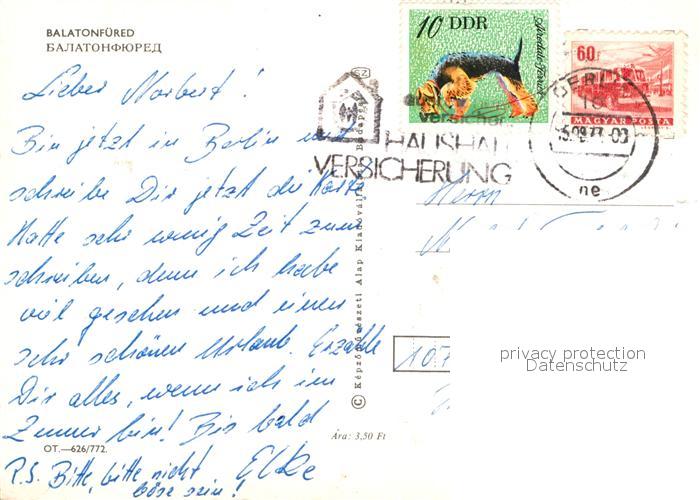 BALATONFÜRED
БАЛАТОНФЮРЕД
Lieber Norbert!
Bin jetzt in Berlin und
schreibe Dir jetzt die Karte
Hatte sehr wenig Zeit zum
schreiben, denn ich habe
viel gesehen und einen
sehr schönen Urlaub. Erzähle
Dir alles, wenn ich im
Zimmer bin! Bis bald
Elke
P.S. Bitte, bitte nicht
böse sein!
OT.—626/772.
Ára: 3,50 Ft
© Képzőművészeti Alap Kiadóvállalata Budapest
10 DDR
Airedale-Terrier
60
MAGYAR POSTA
HAUSHALT
VERSICHERUNG
BERLIN
Herrn
107
privacy protection
Datenschutz